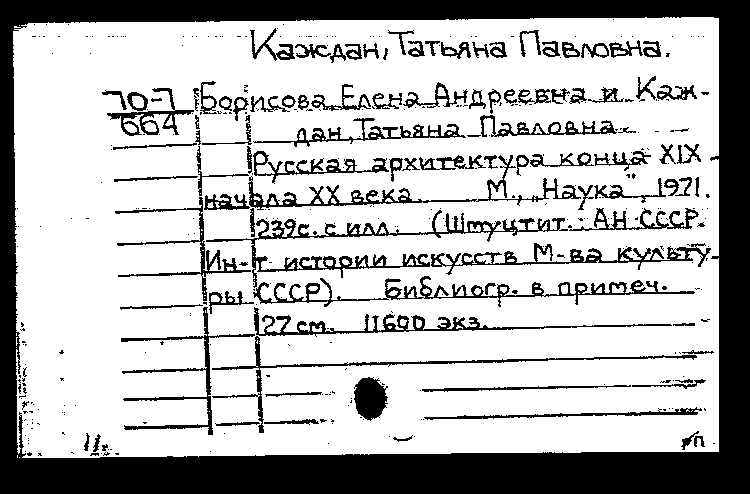 Каждан, Татьяна Павловна.
70-7
664
Борисова Елена Андреевна и Каж-
дан, Татьяна Павловна.
Русская архитектура конца XIX -
начала XX века. М., „Наука", 1971.
239с. с илл. (Штуцтит.: АН СССР.
Ин-т истории искусств М-ва культу-
ры СССР). Библиогр. в примеч.
27 см. 11600 экз.